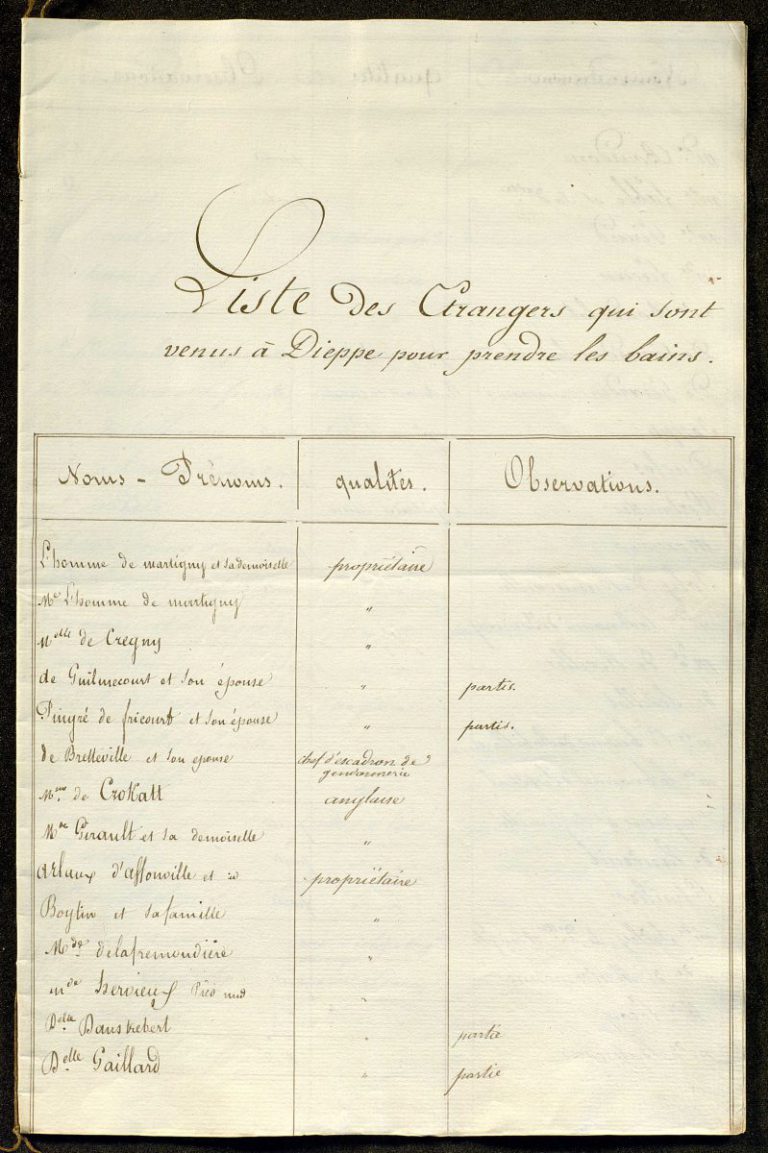 Liste des Etrangers qui sont
venus à Dieppe pour prendre les bains.
Noms - Prénoms. qualités. Observations.
L'homme de martigny et sa demoiselle propriétaire
Me L'homme de martigny "
Melle de Cregny "
de Guilmecourt et son épouse " partis.
Pingré de fricourt et son épouse " partis.
de Bretteville et son epouse chef d'escadron de
gendarmerie
Mme de Crokatt anglaise
Me Girault et sa demoiselle "
Arlaux d'affonville et propriétaire
Boytin et sa famille "
Mde delafremondière "
mde hervieux "
Delle Danskebert " partie
Delle Gaillard " partie